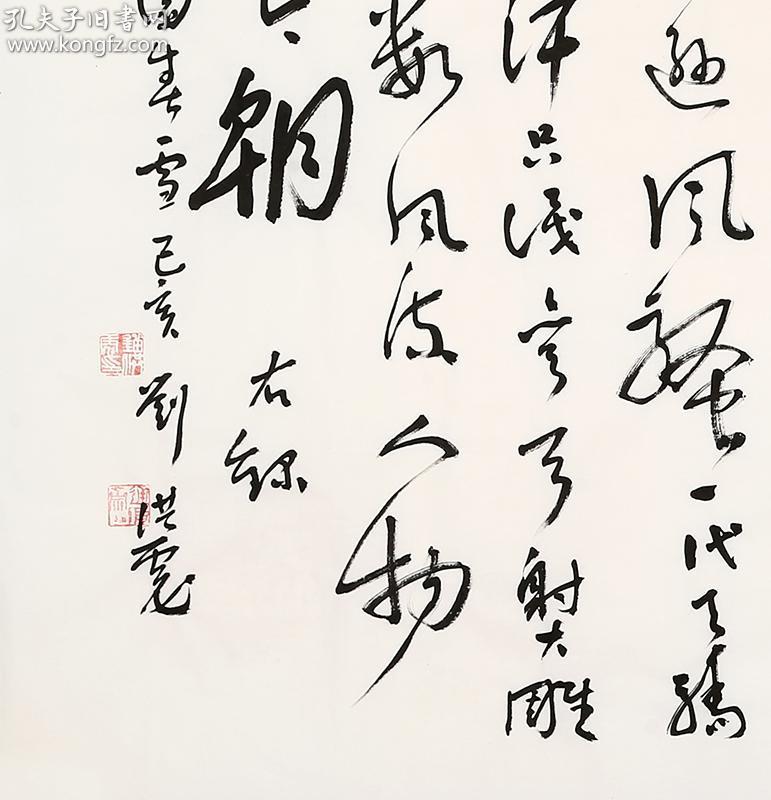 逊风骚一代天骄
汗只识弯弓射大雕
数风流人物
今朝
右录
园春雪己亥
刘洪彪
孔夫子旧书网
www.kongfz.com